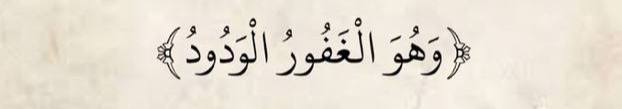 ﴿وَهُوَ الْغَفُورُ الْوَدُودُ﴾